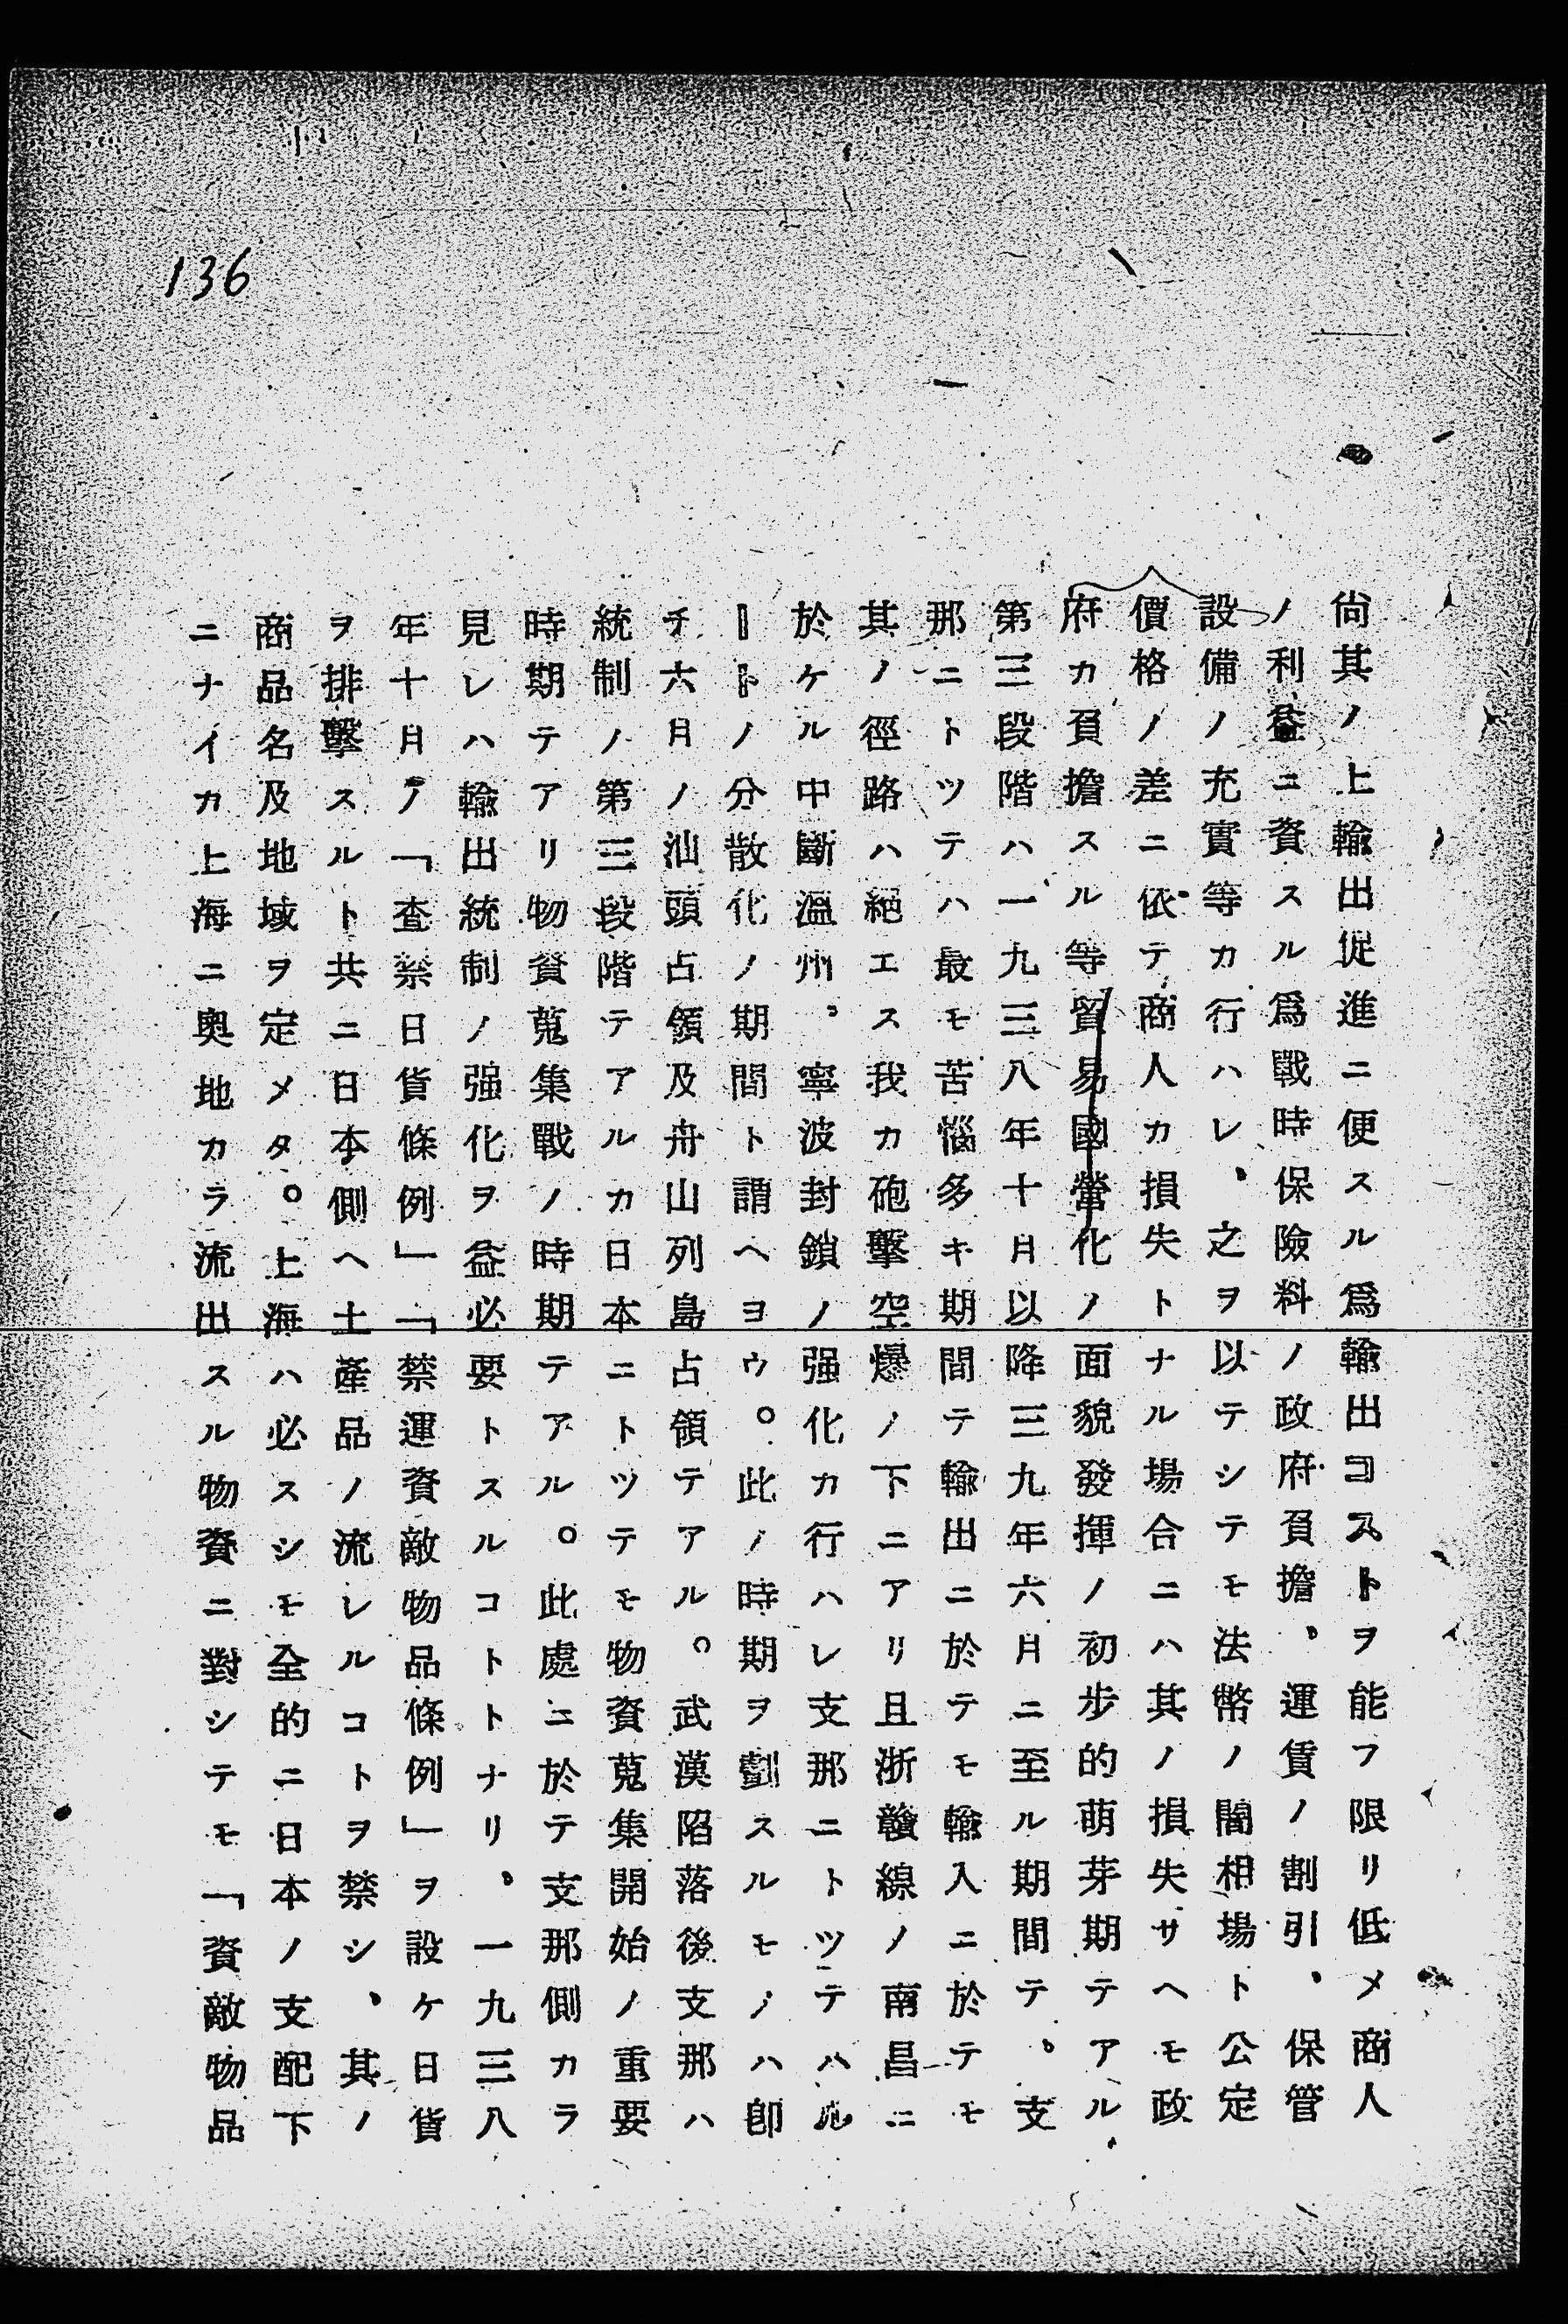 136
尙其ノ上輸出促進ニ便スル爲輸出コストヲ能フ限リ低メ商人
ノ利益ニ資スル爲戰時保險料ノ政府負擔、運賃ノ割引、保管
設備ノ充實等カ行ハレ、之ヲ以テシテモ法幣ノ闇相場ト公定
價格ノ差ニ依テ商人カ損失トナル場合ニハ其ノ損失サヘモ政
府カ負擔スル等貿易國營化ノ面貌發揮ノ初步的萌芽期テアル
第三段階ハ一九三八年十月以降三九年六月ニ至ル期間テ、支
那ニトツテハ最モ苦惱多キ期間テ輸出ニ於テモ輸入ニ於テモ
其ノ徑路ハ絕エス我カ砲擊空爆ノ下ニアリ且浙贛線ノ南昌ニ
於ケル中斷溫州、寧波封鎖ノ强化カ行ハレ支那ニトツテハル
ートノ分散化ノ期間ト謂ヘヨウ。此ノ時期ヲ劃スルモノハ卽
チ六月ノ汕頭占領及舟山列島占領テアル。武漢陷落後支那ハ
統制ノ第三段階テアルカ日本ニトツテモ物資蒐集開始ノ重要
時期テアリ物資蒐集戰ノ時期テアル。此處ニ於テ支那側カラ
見レハ輸出統制ノ强化ヲ益必要トスルコトトナリ、一九三八
年十月ノ「査禁日貨條例」「禁運資敵物品條例」ヲ設ケ日貨
ヲ排擊スルト共ニ日本側ヘ土產品ノ流レルコトヲ禁シ、其ノ
商品名及地域ヲ定メタ。上海ハ必スシモ全的ニ日本ノ支配下
ニナイカ上海ニ奥地カラ流出スル物資ニ對シテモ「資敵物品